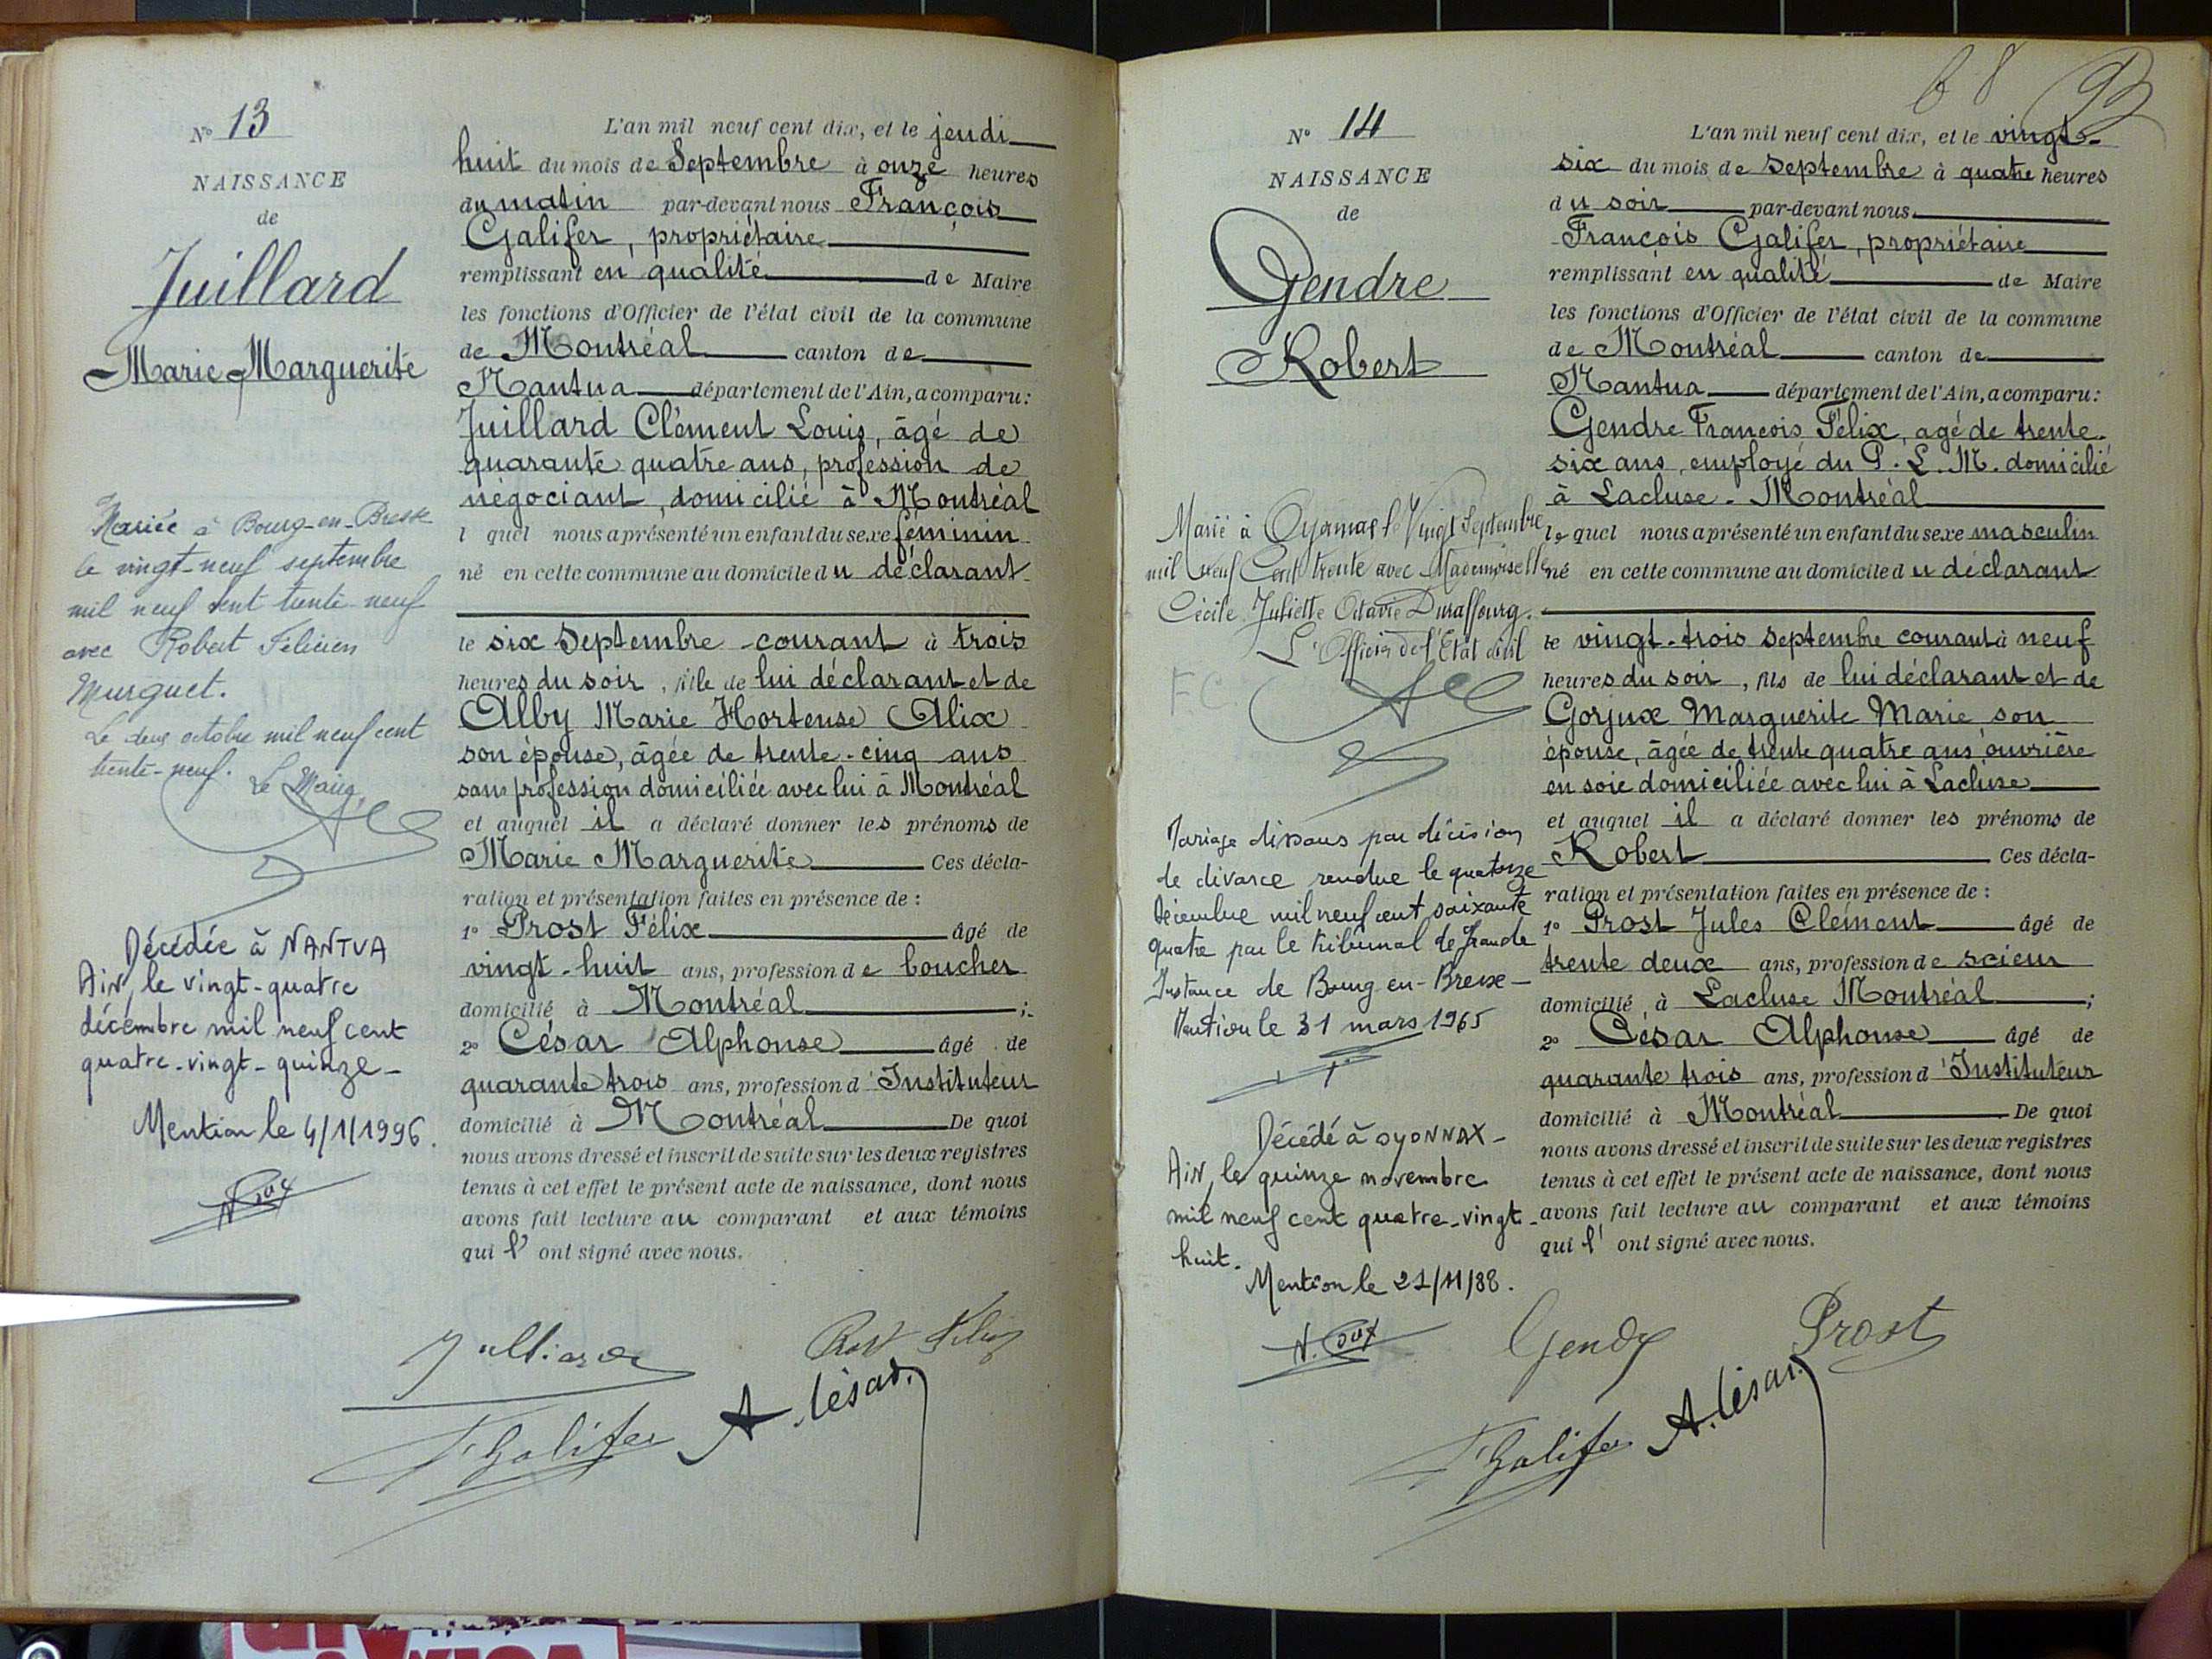 N° 13
NAISSANCE
de
Juillard
Marie Marguerite
Mariée à Bourg-en-Bresse
le vingt-neuf septembre
mil neuf cent trente neuf
avec Robert Félicien
Murguet.
Le deux octobre mil neuf cent
trente-neuf. Le Maire,
Décédée à NANTUA
AiN, le vingt-quatre
décembre mil neuf cent
quatre-vingt-quinze-
Mention le 4/1/1996.
L'an mil neuf cent dix, et le jeudi
huit du mois de Septembre à onze heures
du matin par-devant nous François
Galifer, propriétaire
remplissant en qualité de Maire
les fonctions d'Officier de l'état civil de la commune
de Montréal canton de
Nantua département de l'Ain, a comparu:
Juillard Clément Louis, âgé de
quarante quatre ans, profession de
négociant, domicilié à Montréal
l quel nous a présenté un enfant du sexe féminin
né en cette commune au domicile du déclarant
le six Septembre courant à trois
heures du soir, fille de lui déclarant et de
Alby Marie Hortense Alix
son épouse, âgée de trente-cinq ans
sans profession domiciliée avec lui à Montréal
et auquel il a déclaré donner les prénoms de
Marie Marguerite Ces décla-
ration et présentation faites en présence de :
1° Prost Félix âgé de
vingt-huit ans, profession de boucher
domicilié à Montréal ;
2° César Alphonse âgé de
quarante trois ans, profession d'Instituteur
domicilié à Montréal De quoi
nous avons dressé et inscrit de suite sur les deux registres
tenus à cet effet le présent acte de naissance, dont nous
avons fait lecture au comparant et aux témoins
qui l' ont signé avec nous.
Juilliard Prost Félix
F Galifer A. César
68
N° 14
NAISSANCE
de
Gendre
Robert
Marié à Oyonnax le Vingt Septembre
mil neuf Cent trente avec Mademoiselle
Cécile Juliette Octavie Duraffourg.
L'Officier de l'Etat civil
FC
Mariage dissous par décision
de divorce rendue le quatorze
décembre mil neuf cent soixante
quatre par le tribunal de Grande
Instance de Bourg-en-Bresse-
Mention le 31 mars 1965
Décédé à OYONNAX-
AiN, le quinze novembre
mil neuf cent quatre-vingt-
huit.
Mention le 21/11/88.
L'an mil neuf cent dix, et le vingt-
six du mois de Septembre à quatre heures
du soir par-devant nous
François Galifer, propriétaire
remplissant en qualité de Maire
les fonctions d'Officier de l'état civil de la commune
de Montréal canton de
Nantua département de l'Ain, a comparu:
Gendre François Félix, agé de trente-
six ans, employé du P.L.M. domicilié
à Lacluse-Montréal
le quel nous a présenté un enfant du sexe masculin
né en cette commune au domicile du déclarant
le vingt-trois septembre courant à neuf
heures du soir, fils de lui déclarant et de
Gorjux Marguerite Marie son
épouse, âgée de trente quatre ans ouvrière
en soie domiciliée avec lui à Lacluse
et auquel il a déclaré donner les prénoms de
Robert Ces décla-
ration et présentation faites en présence de :
1° Prost Jules Clément âgé de
trente deux ans, profession de scieur
domicilié à Lacluse Montréal ;
2° César Alphonse âgé de
quarante trois ans, profession d'Instituteur
domicilié à Montréal De quoi
nous avons dressé et inscrit de suite sur les deux registres
tenus à cet effet le présent acte de naissance, dont nous
avons fait lecture au comparant et aux témoins
qui l' ont signé avec nous.
Gendre Prost
F Galifer A. César